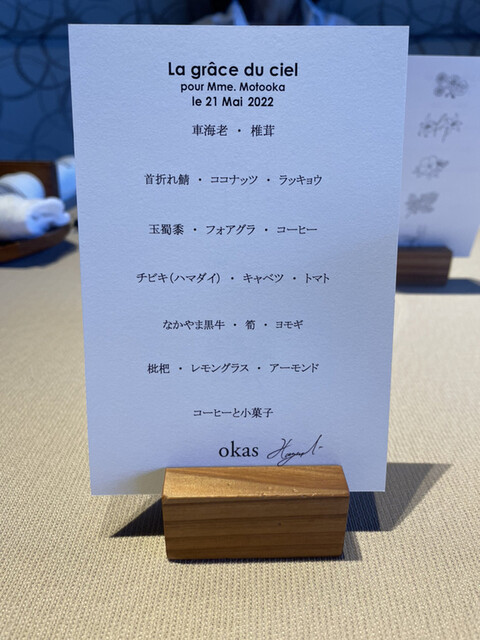 La grâce du ciel
pour Mme. Motooka
le 21 Mai 2022
車海老 ・ 椎茸
首折れ鯖 ・ ココナッツ ・ ラッキョウ
玉蜀黍 ・ フォアグラ ・ コーヒー
チビキ（ハマダイ） ・ キャベツ ・ トマト
なかやま黒牛 ・ 筍 ・ ヨモギ
枇杷 ・ レモングラス ・ アーモンド
コーヒーと小菓子
okas